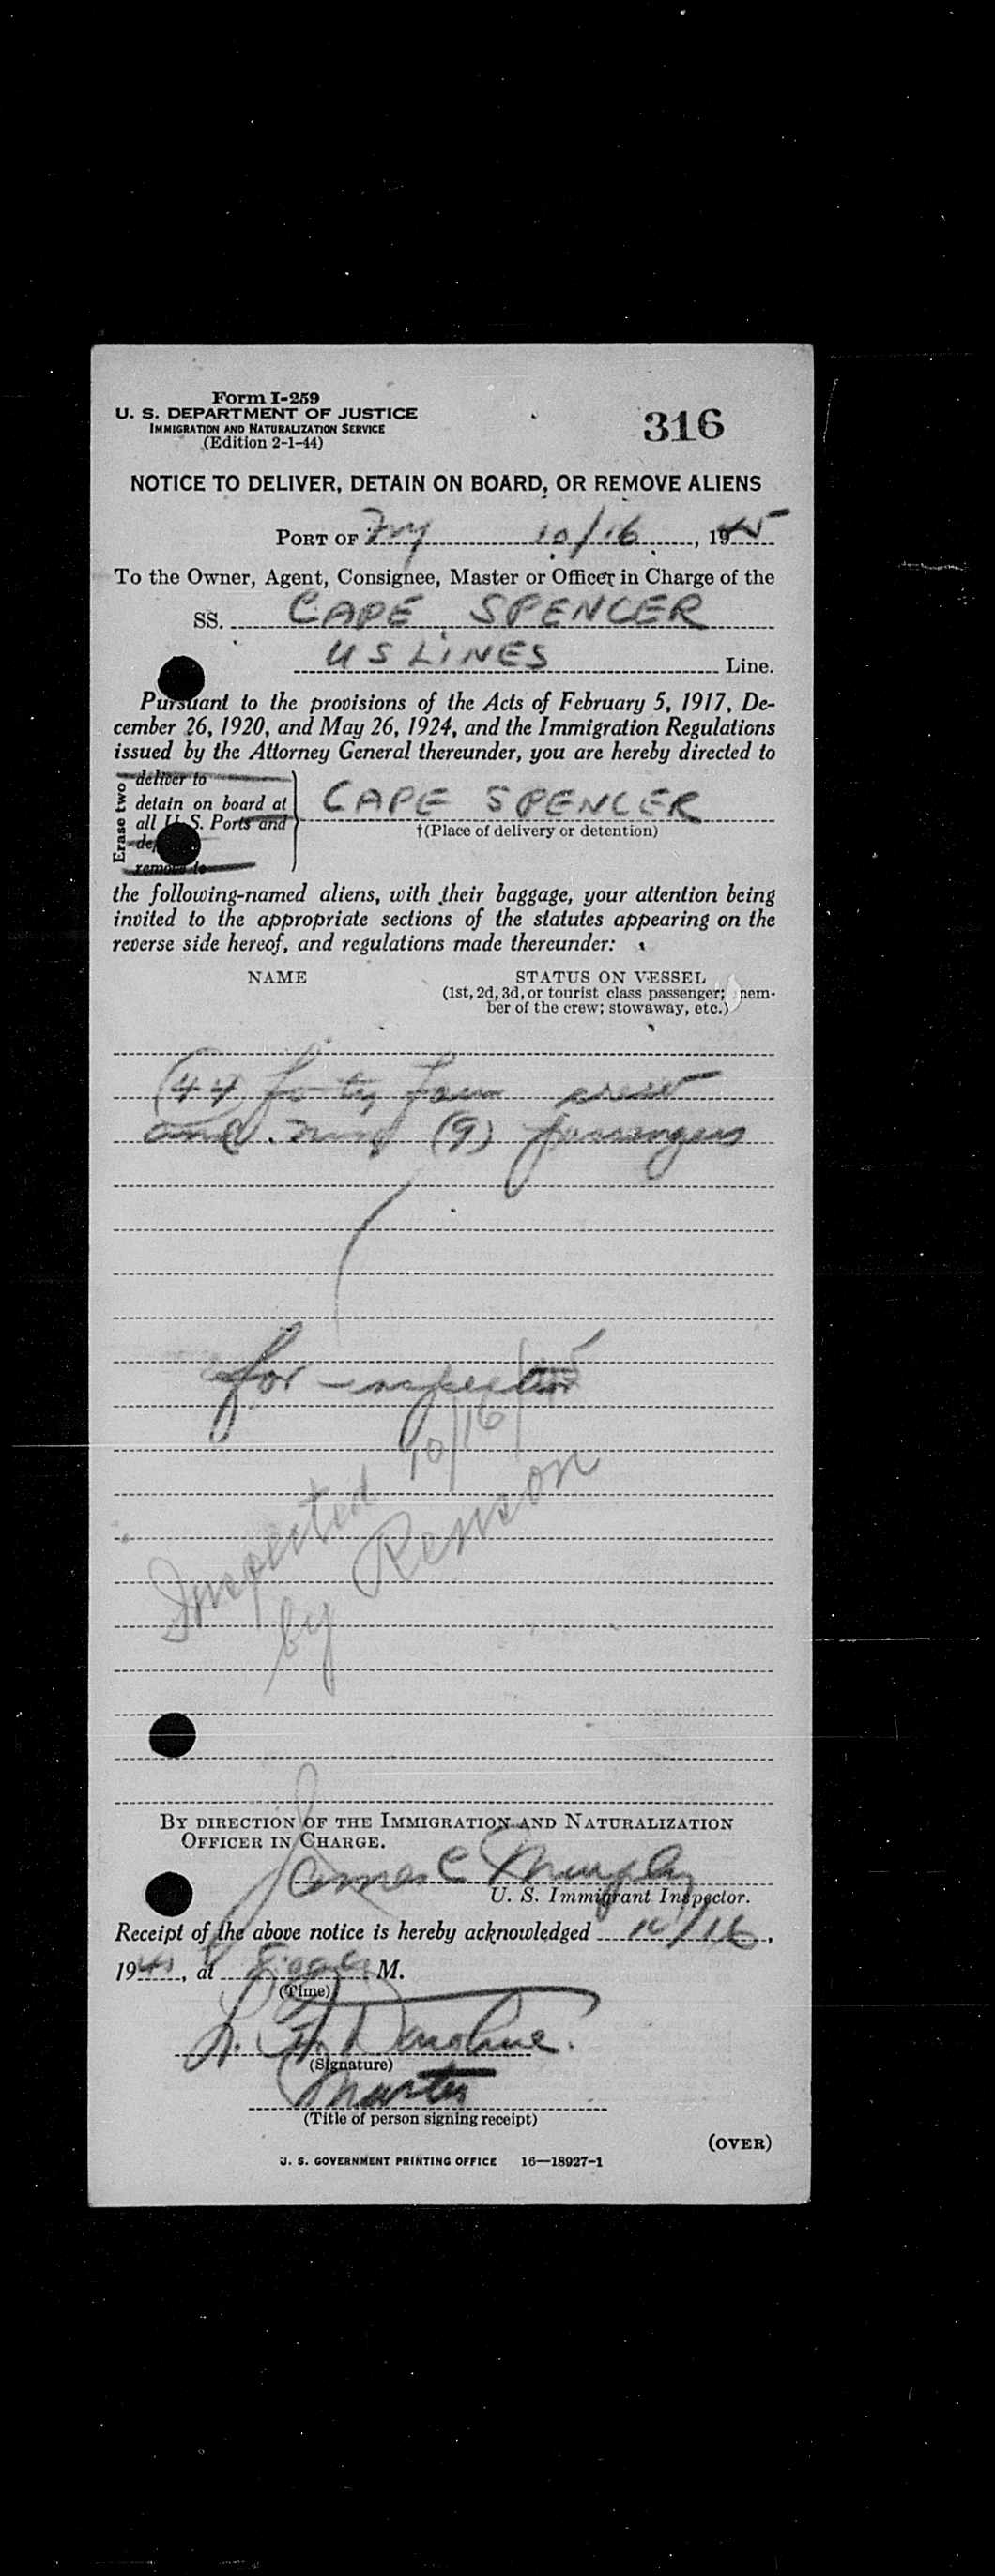 Form I-259
U. S. DEPARTMENT OF JUSTICE
IMMIGRATION AND NATURALIZATION SERVICE
(Edition 2-1-44)
316
NOTICE TO DELIVER, DETAIN ON BOARD, OR REMOVE ALIENS
PORT OF NY 10/16, 1945
To the Owner, Agent, Consignee, Master or Officer in Charge of the
SS. CAPE SPENCER
US LINES Line.
Pursuant to the provisions of the Acts of February 5, 1917, De-
cember 26, 1920, and May 26, 1924, and the Immigration Regulations
issued by the Attorney General thereunder, you are hereby directed to
Erase two
deliver to
detain on board at
all U. S. Ports and
remove to
CAPE SPENCER
†(Place of delivery or detention)
the following-named aliens, with their baggage, your attention being
invited to the appropriate sections of the statutes appearing on the
reverse side hereof, and regulations made thereunder:
NAME
STATUS ON VESSEL
(1st, 2d, 3d, or tourist class passenger; mem-
ber of the crew; stowaway, etc.)
(44) forty four crew
and nine (9) passengers
for inspection
Inspected 10/16/45
by Renson
BY DIRECTION OF THE IMMIGRATION AND NATURALIZATION
OFFICER IN CHARGE.
James C Murphy
U. S. Immigrant Inspector.
Receipt of the above notice is hereby acknowledged 10/16,
19, at M.
(Time)
Donohue.
(Signature)
Master
(Title of person signing receipt)
(OVER)
U. S. GOVERNMENT PRINTING OFFICE 16—18927-1